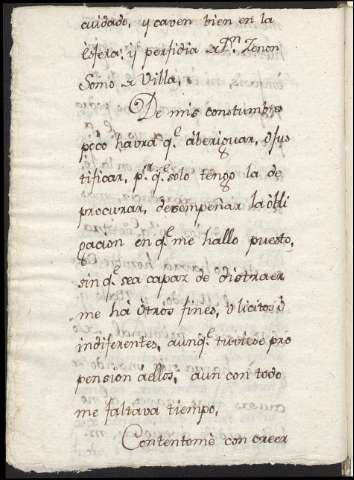 cuidado, y caven bien en la
esfera, y perfidia de Dn Zenon
Somo de Villa,
De mis constumbres
poco havra q.e aberiguar, o jus
tificar, p.r q.e solo tengo la de
procurar, desempeñar la obli
gacion en q.e me hallo puesto,
sin q.e sea capaz de distraer
me há otros fines, o licitos ó
indiferentes, aunq.e tuviese pro
pension áellos, aun con todo
me faltava tiempo,
Contentome con creer